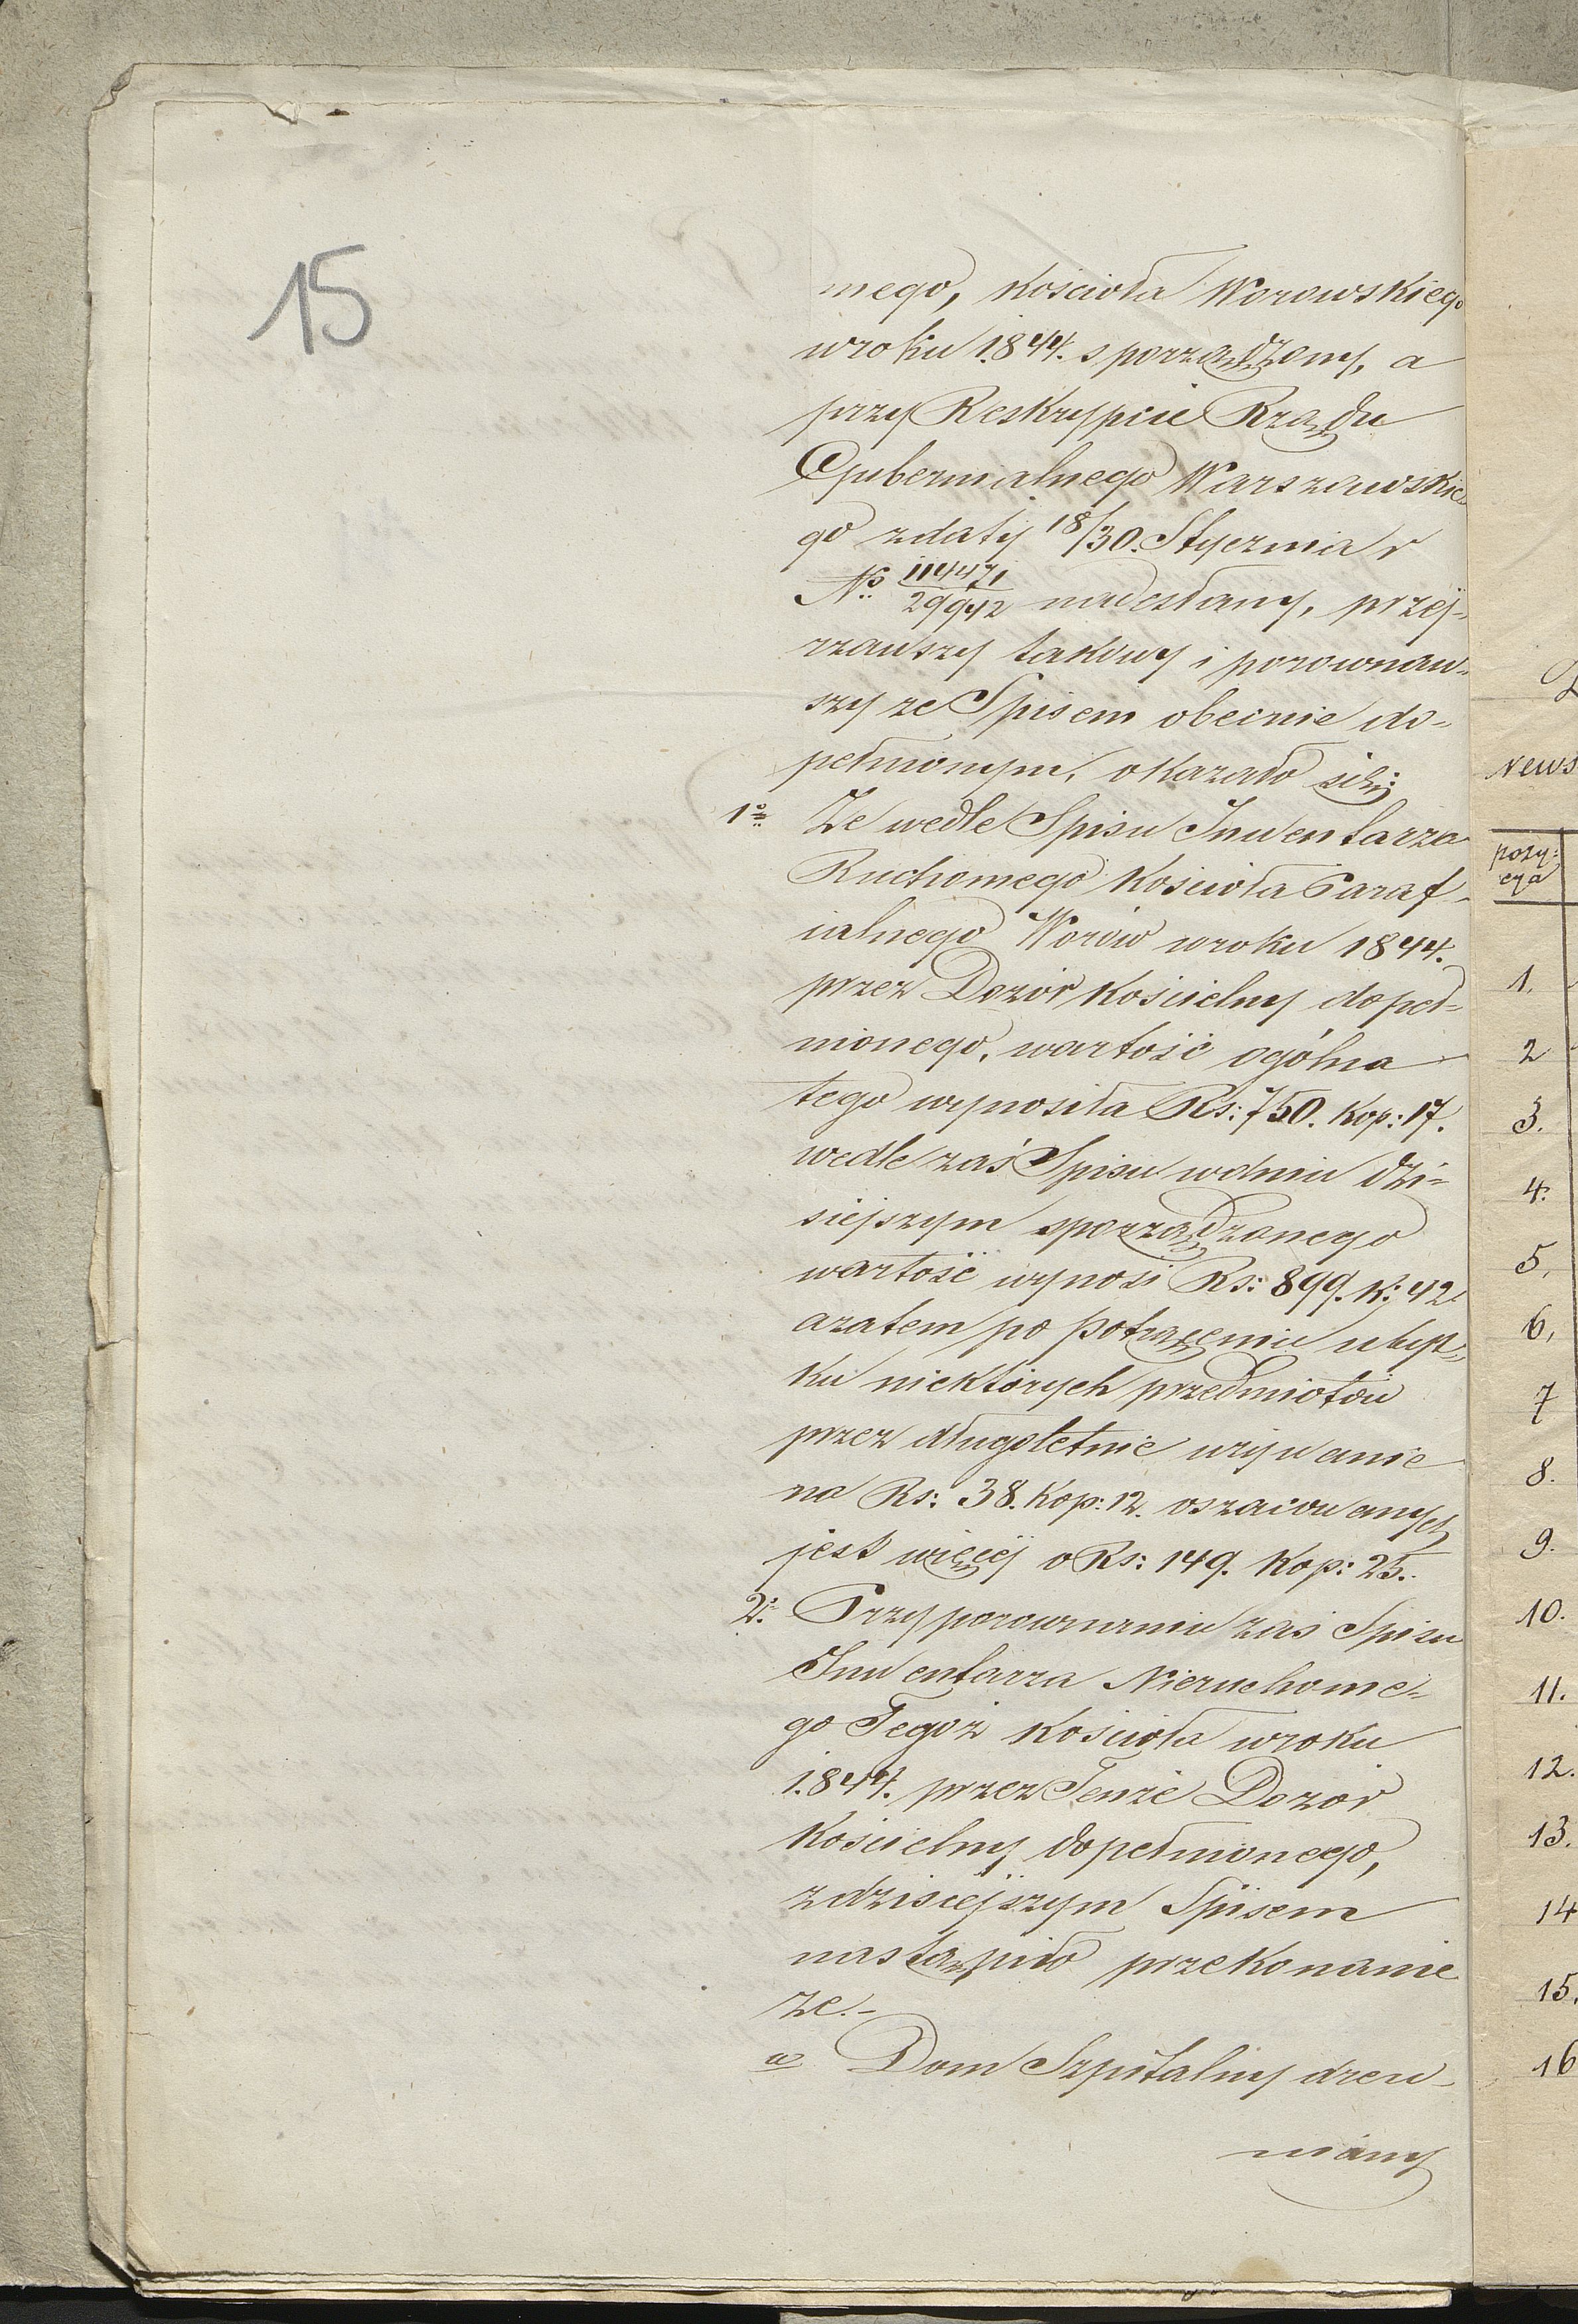 15
mego, Kościoła Worowskiego
wroku 1844. sporządzony, a
przy Reskrypcie Rządu
Gubernialnego Warszawskie
go zdaty 18/30. Stycznia r
No 114471/29942 nadesłany, przéj-
rzawszy takowy i porownaw-
szy ze Spisem obecnie do-
pełnionym, okazało się:
1o Ze wedle Spisu Inwentarza
Ruchomego Kościoła Paraf-
ialnego Worów wroku 1844.
przez Dozór Kościelny dopeł-
nionego, wartość ogólna
tego wynosiła Rs: 750. Kop: 17.
wedle zaś Spisu wdniu dzi-
siejszym sporządzonego
wartość wynosi Rs: 899. K: 42
azatem po potrąceniu ubyt-
ku niektórych przedmiotów
przez długoletnie używanie
na Rs: 38. Kop: 12. oszacowanych
jest więcéj o Rs: 149. Kop: 25.
2o Przy porownaniu zaś Spisu
Inwentarza Nieruchome-
go Tegoż Kościoła wroku
1844. przez Tenże Dozór
Kościelny dopełnionego,
zdzisiejszym Spisem
nastąpiło przekonanie
ze.-
a Dom Szpitalny drew-
niany
News
pozy-
cya
1.
2
3.
4.
5.
6.
7
8.
9.
10.
11.
12.
13.
14
15.
16